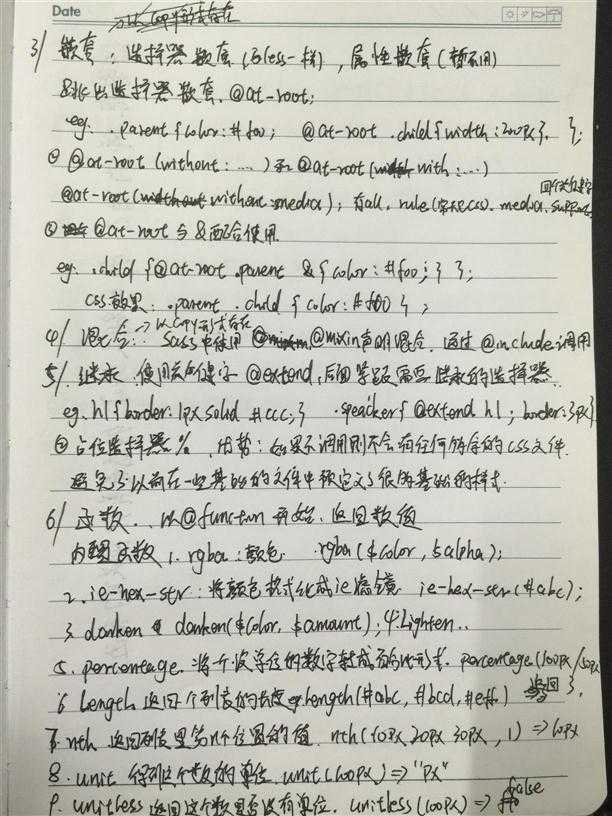 Date
以copy形式存在
3/ 嵌套：选择器嵌套(与less一样)，属性嵌套(暂不用)
&跳出选择器嵌套，@at-root;
eg. .parent{color:#f00; @at-root .child{width:200px}. };
① @at-root (without:....)和@at-root(with:...)
@at-root(without:media); 有all, rule(常规css), media, supports
② @at-root与&配合使用
eg. .child{@at-root .parent &{color:#f00;}};
css效果: .parent .child{color:#f00};
4/ 混合: →以copy形式存在
sass中使用@mixin声明混合. 通过@include调用
5/ 继承 使用关键字@extend,后面紧跟需要继承的选择器
eg. h1{border:1px solid #ccc;} .speacker{@extend h1; border:3px}
① 占位选择器%, 优势: 如果不调用则不会有任何多余的css文件.
避免了以前在一些基础的文件中预定义了很多基础的样式.
6/ 函数. 以@function开始. 返回数值
内置函数 1. rgba: 颜色 rgba($color, $alpha);
2. ie-hex-str: 将颜色格式化成ie滤镜 ie-hex-str(#abc);
3. darken darken($color, $amount); 4. lighten..
5. percentage. 将不设单位的数字转成百分比形式. percentage(100px/50px
6. Length 返回个列表的长度 length(#abc, #bcd, #eff) 返回3.
7. nth 返回列表里第n个位置的值. nth(10px 20px 30px, 1) => 10px
8. unit 得到这个数的单位 unit(100px) => "px"
9. unitless 返回这个数是否没有单位. unitless(100px) => false